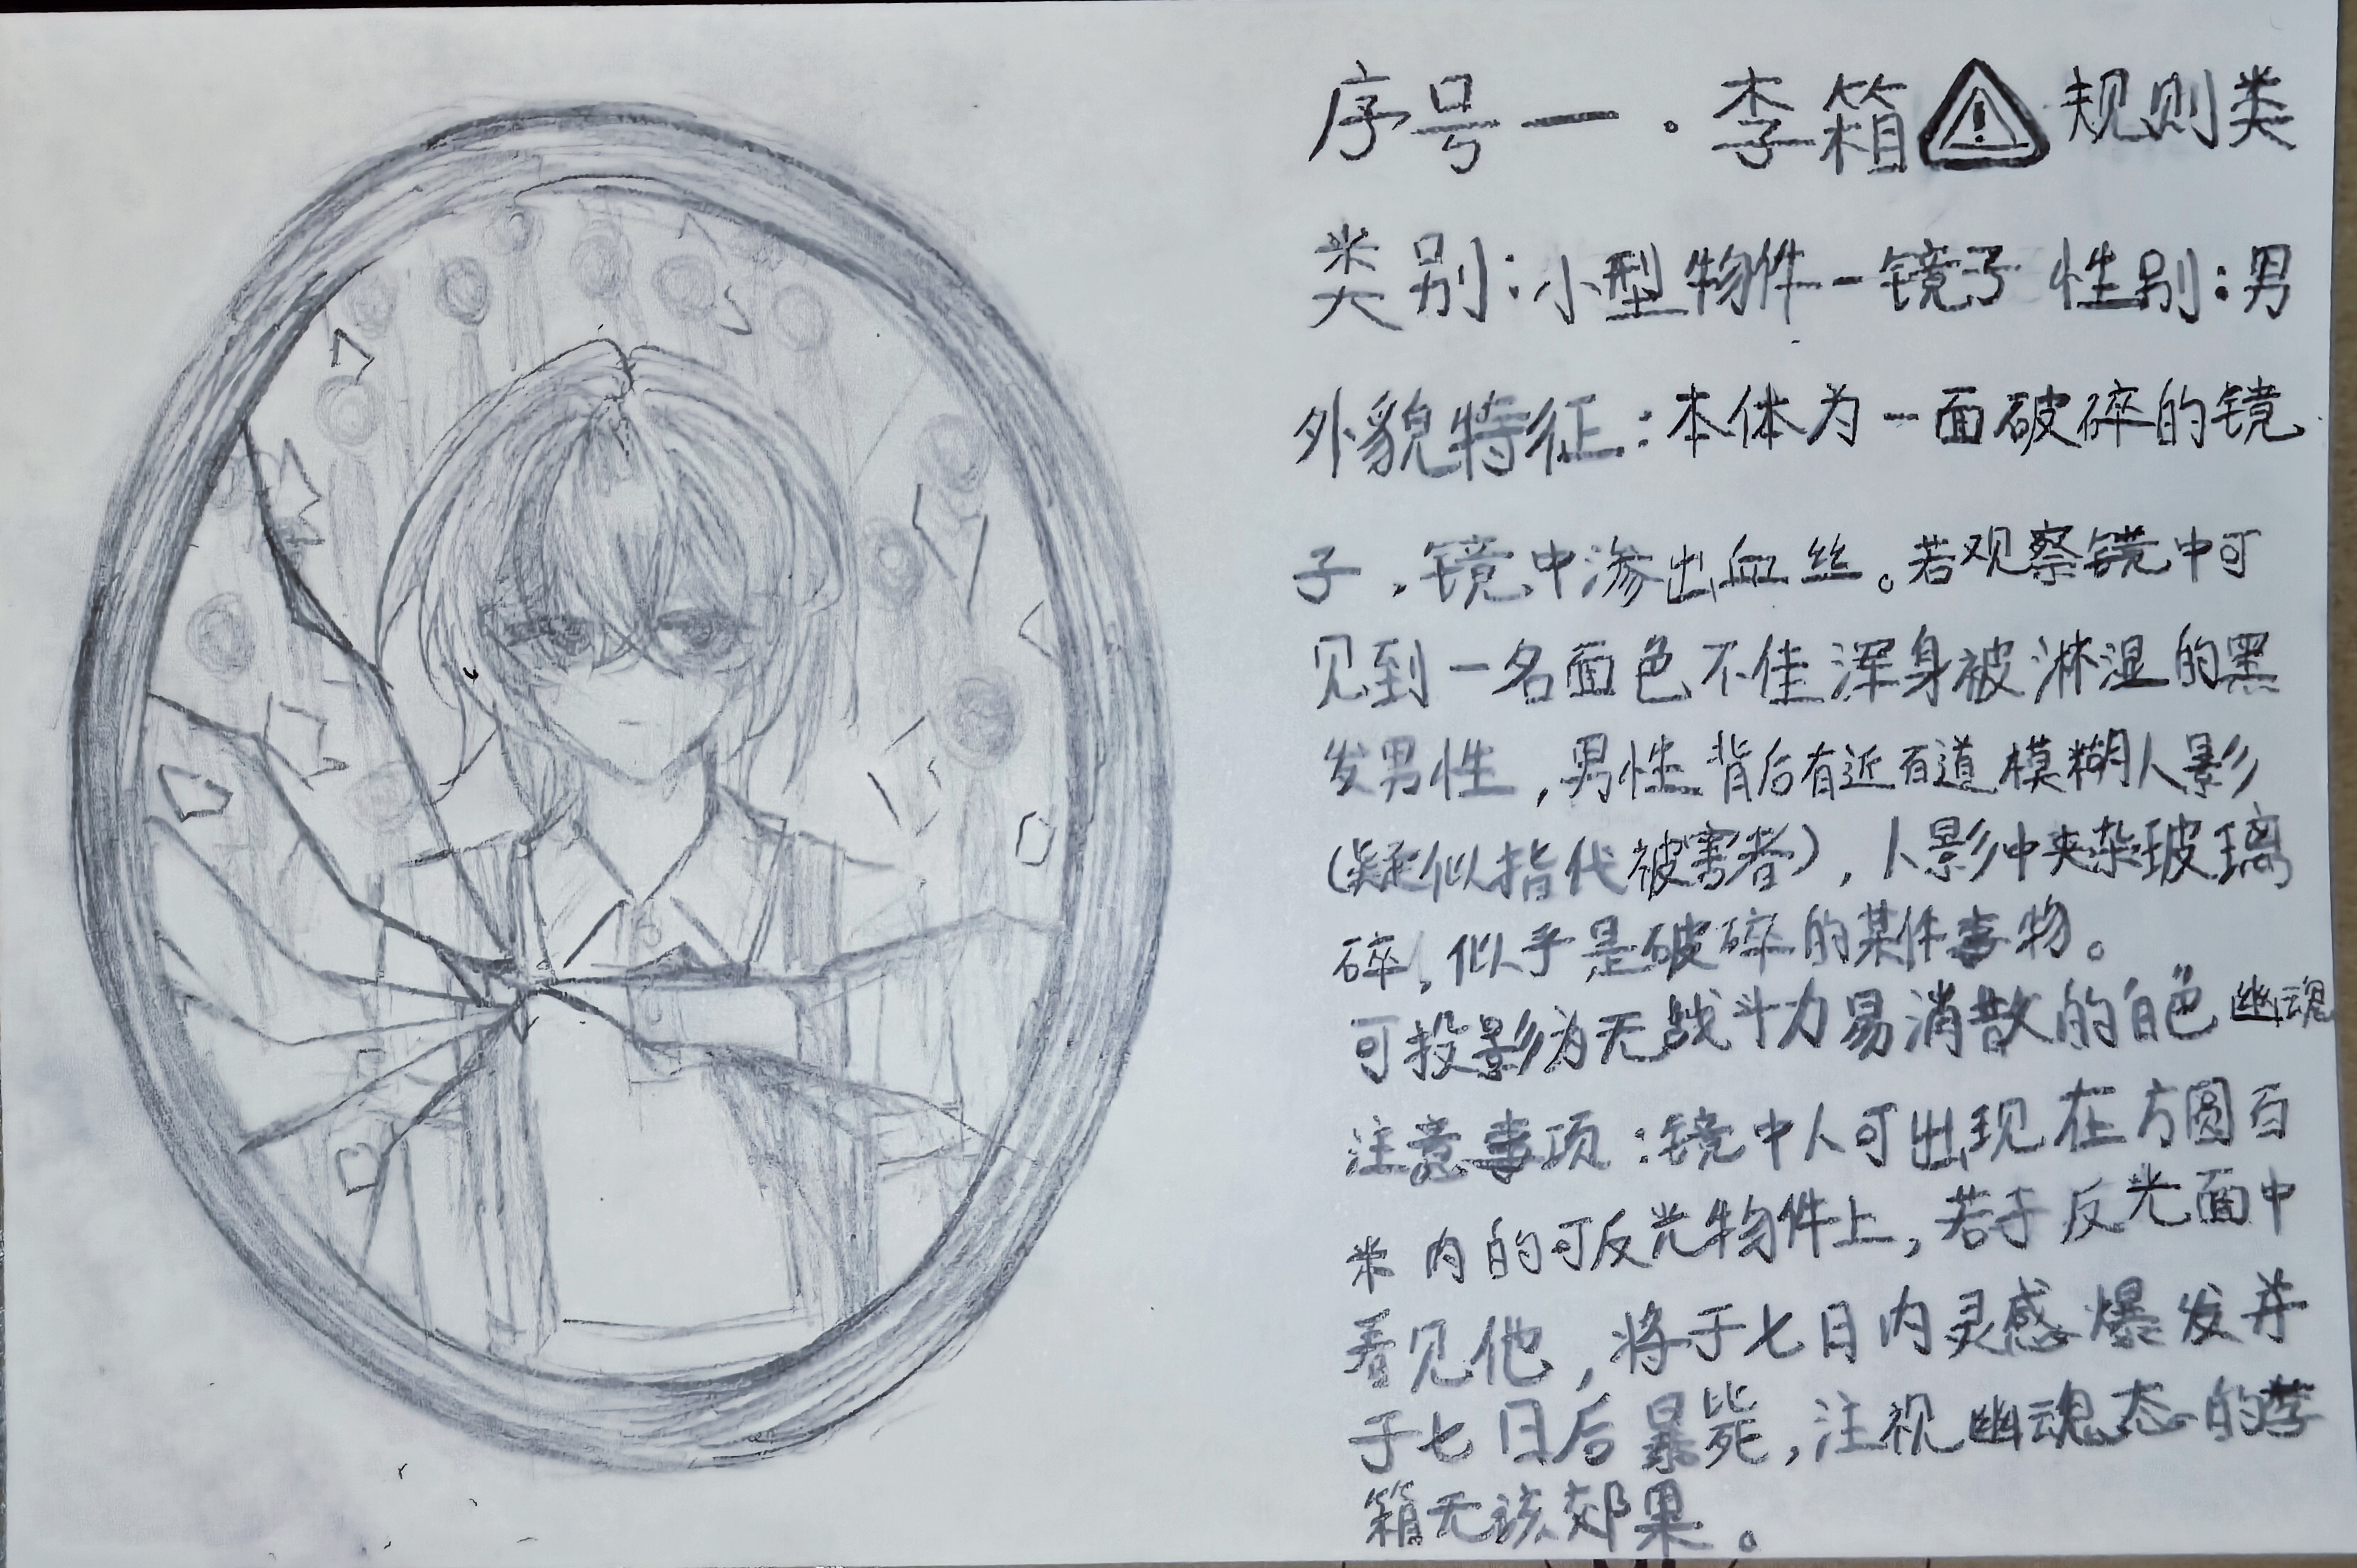 序号一.李箱⚠规则类
类别:小型物件-镜子 性别:男
外貌特征:本体为一面破碎的镜
子,镜中渗出血丝。若观察镜中可
见到一名面色不佳浑身被淋湿的黑
发男性,男性背后有近百道模糊人影
(疑似指代被害者),人影中夹杂玻璃
碎,似乎是破碎的某件事物。
可投影为无战斗力易消散的白色幽魂
注意事项:镜中人可出现在方圆百
米内的可反光物件上,若于反光面中
看见他,将于七日内灵感爆发并
于七日后暴毙,注视幽魂态的李
箱无该効果。